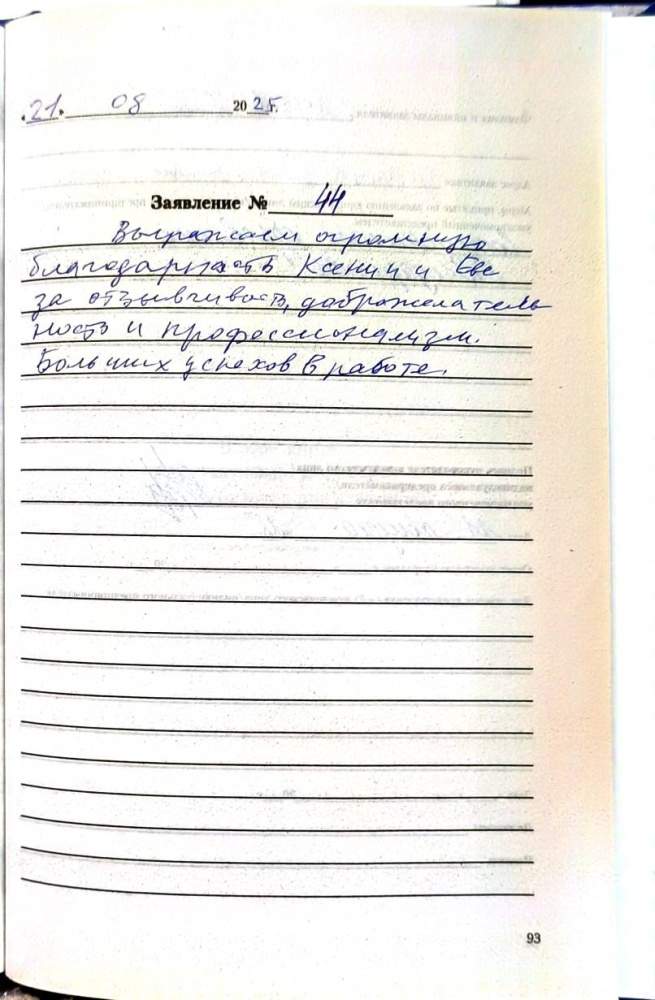 «21» 08 2025г.
Заявление № 44
Выражаем огромную
благодарность Ксении и Еве
за отзывчивость, доброжелатель
ность и профессионализм.
Больших успехов в работе.
93